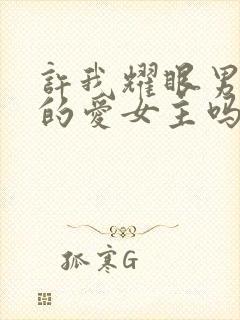 許我耀眼男
的愛女主嗎
孤寒G